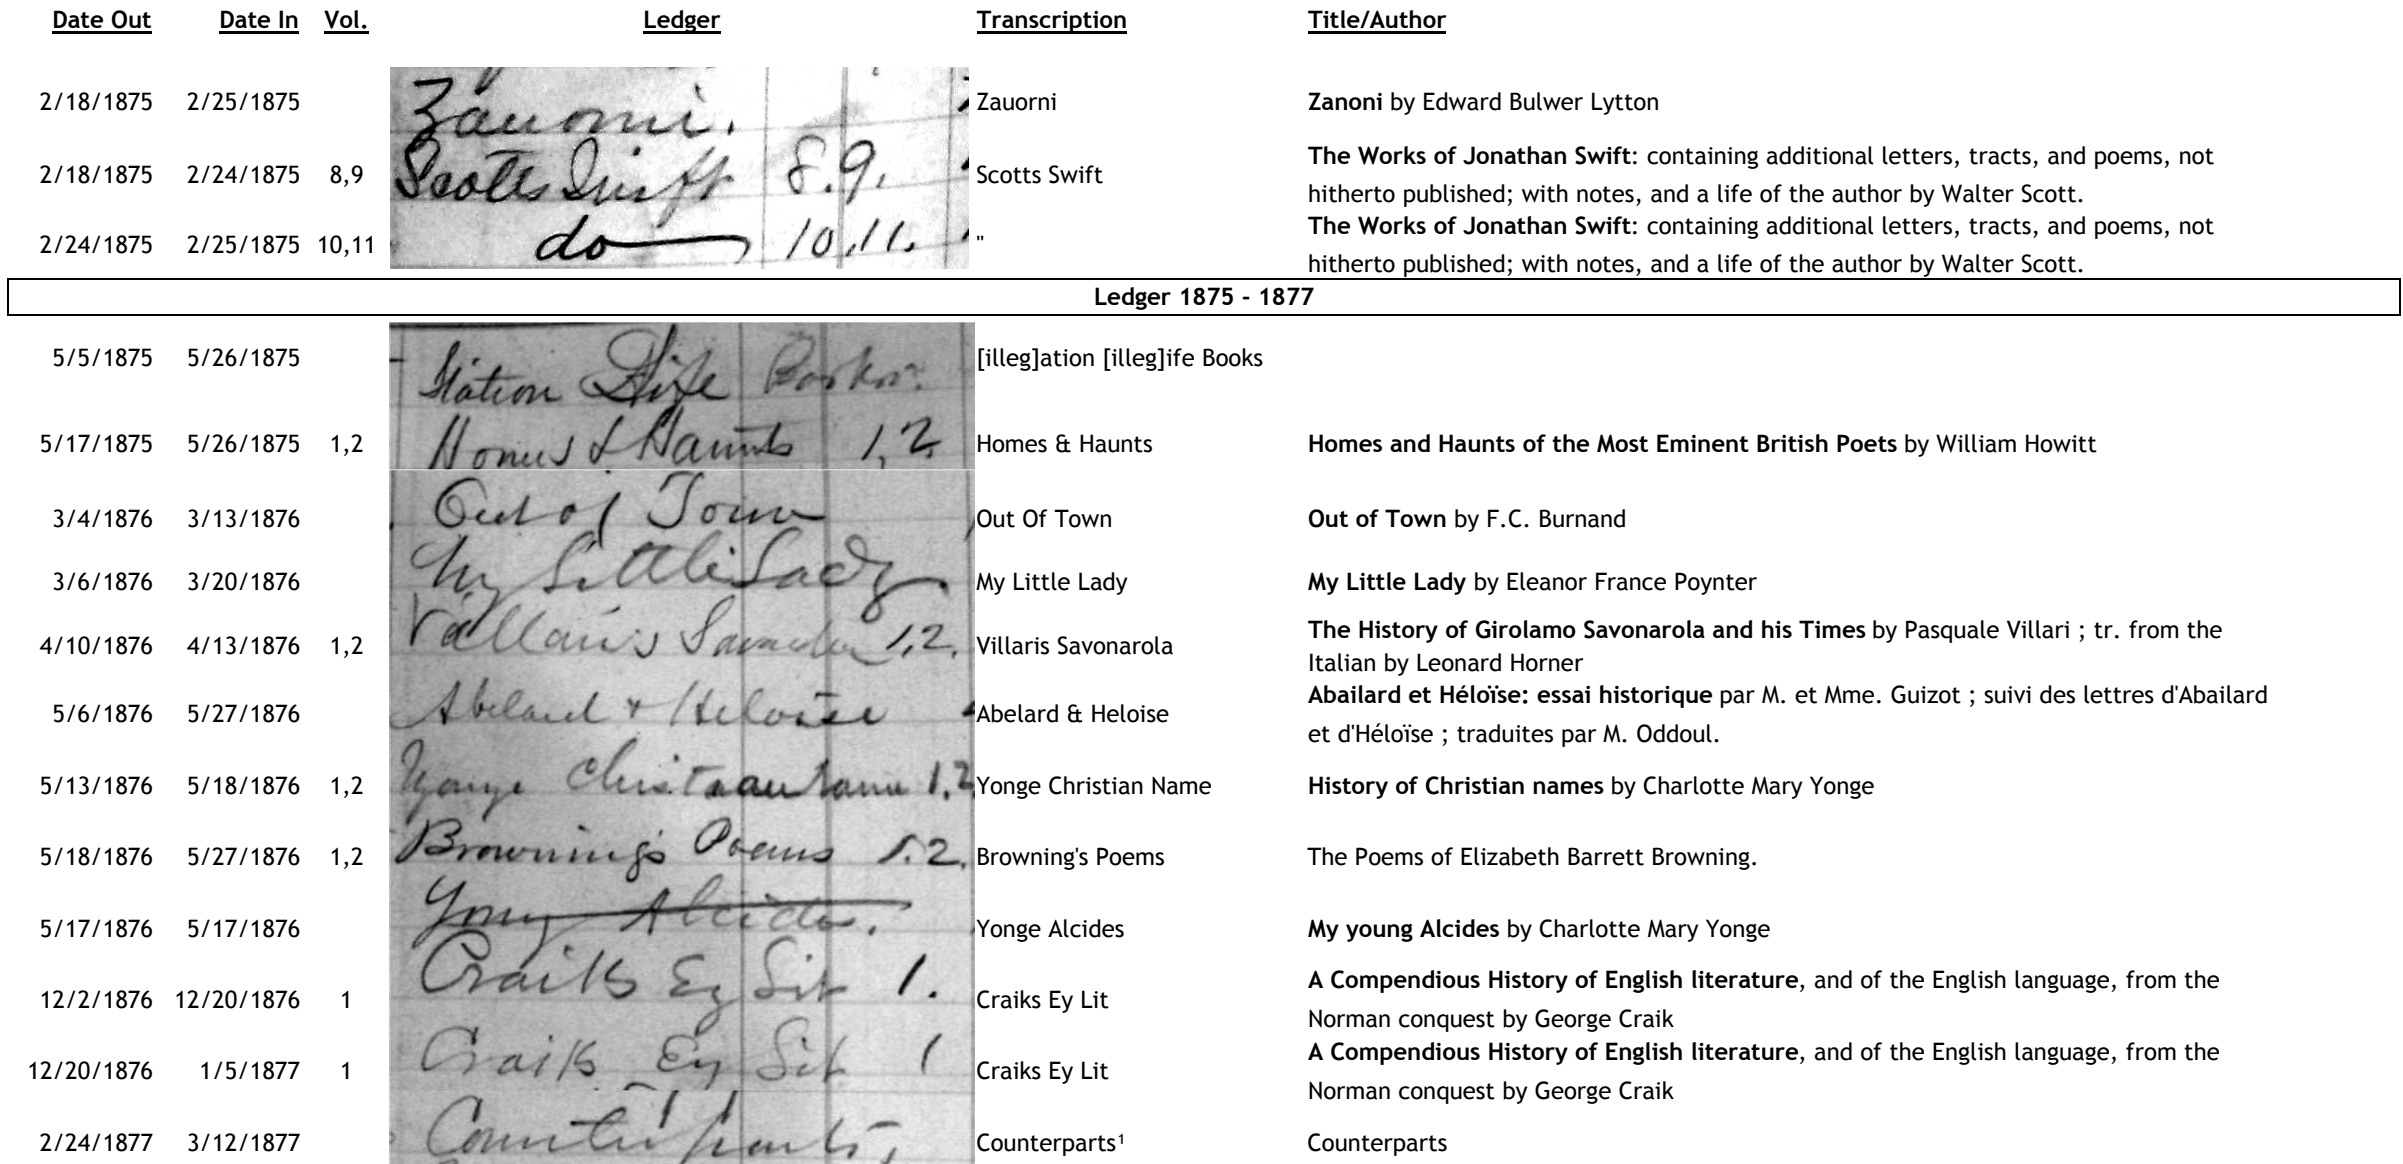 Date Out Date In Vol. Ledger Transcription Title/Author
2/18/1875 2/25/1875 Zauoni. Zauorni Zanoni by Edward Bulwer Lytton
2/18/1875 2/24/1875 8,9 Scotts Swift 8.9. Scotts Swift The Works of Jonathan Swift: containing additional letters, tracts, and poems, not
hitherto published; with notes, and a life of the author by Walter Scott.
2/24/1875 2/25/1875 10,11 do 10,11. " The Works of Jonathan Swift: containing additional letters, tracts, and poems, not
hitherto published; with notes, and a life of the author by Walter Scott.
Ledger 1875 - 1877
5/5/1875 5/26/1875 [illeg]ation [illeg]ife Books
5/17/1875 5/26/1875 1,2 Homes & Haunts 1,2 Homes & Haunts Homes and Haunts of the Most Eminent British Poets by William Howitt
3/4/1876 3/13/1876 Out of Town Out Of Town Out of Town by F.C. Burnand
3/6/1876 3/20/1876 My Little Lady My Little Lady My Little Lady by Eleanor France Poynter
4/10/1876 4/13/1876 1,2 Villaris Savonarola 1,2. Villaris Savonarola The History of Girolamo Savonarola and his Times by Pasquale Villari ; tr. from the
Italian by Leonard Horner
5/6/1876 5/27/1876 Abelard & Heloise Abelard & Heloise Abailard et Héloïse: essai historique par M. et Mme. Guizot ; suivi des lettres d'Abailard
et d'Héloïse ; traduites par M. Oddoul.
5/13/1876 5/18/1876 1,2 Yonge Christian Name 1,2 Yonge Christian Name History of Christian names by Charlotte Mary Yonge
5/18/1876 5/27/1876 1,2 Browning's Poems 1.2. Browning's Poems The Poems of Elizabeth Barrett Browning.
5/17/1876 5/17/1876 Yong Alcides. Yonge Alcides My young Alcides by Charlotte Mary Yonge
12/2/1876 12/20/1876 1 Craiks Ey Lit 1. Craiks Ey Lit A Compendious History of English literature, and of the English language, from the
Norman conquest by George Craik
12/20/1876 1/5/1877 1 Craiks Ey Lit 1 Craiks Ey Lit A Compendious History of English literature, and of the English language, from the
Norman conquest by George Craik
2/24/1877 3/12/1877 Counterparts, Counterparts¹ Counterparts